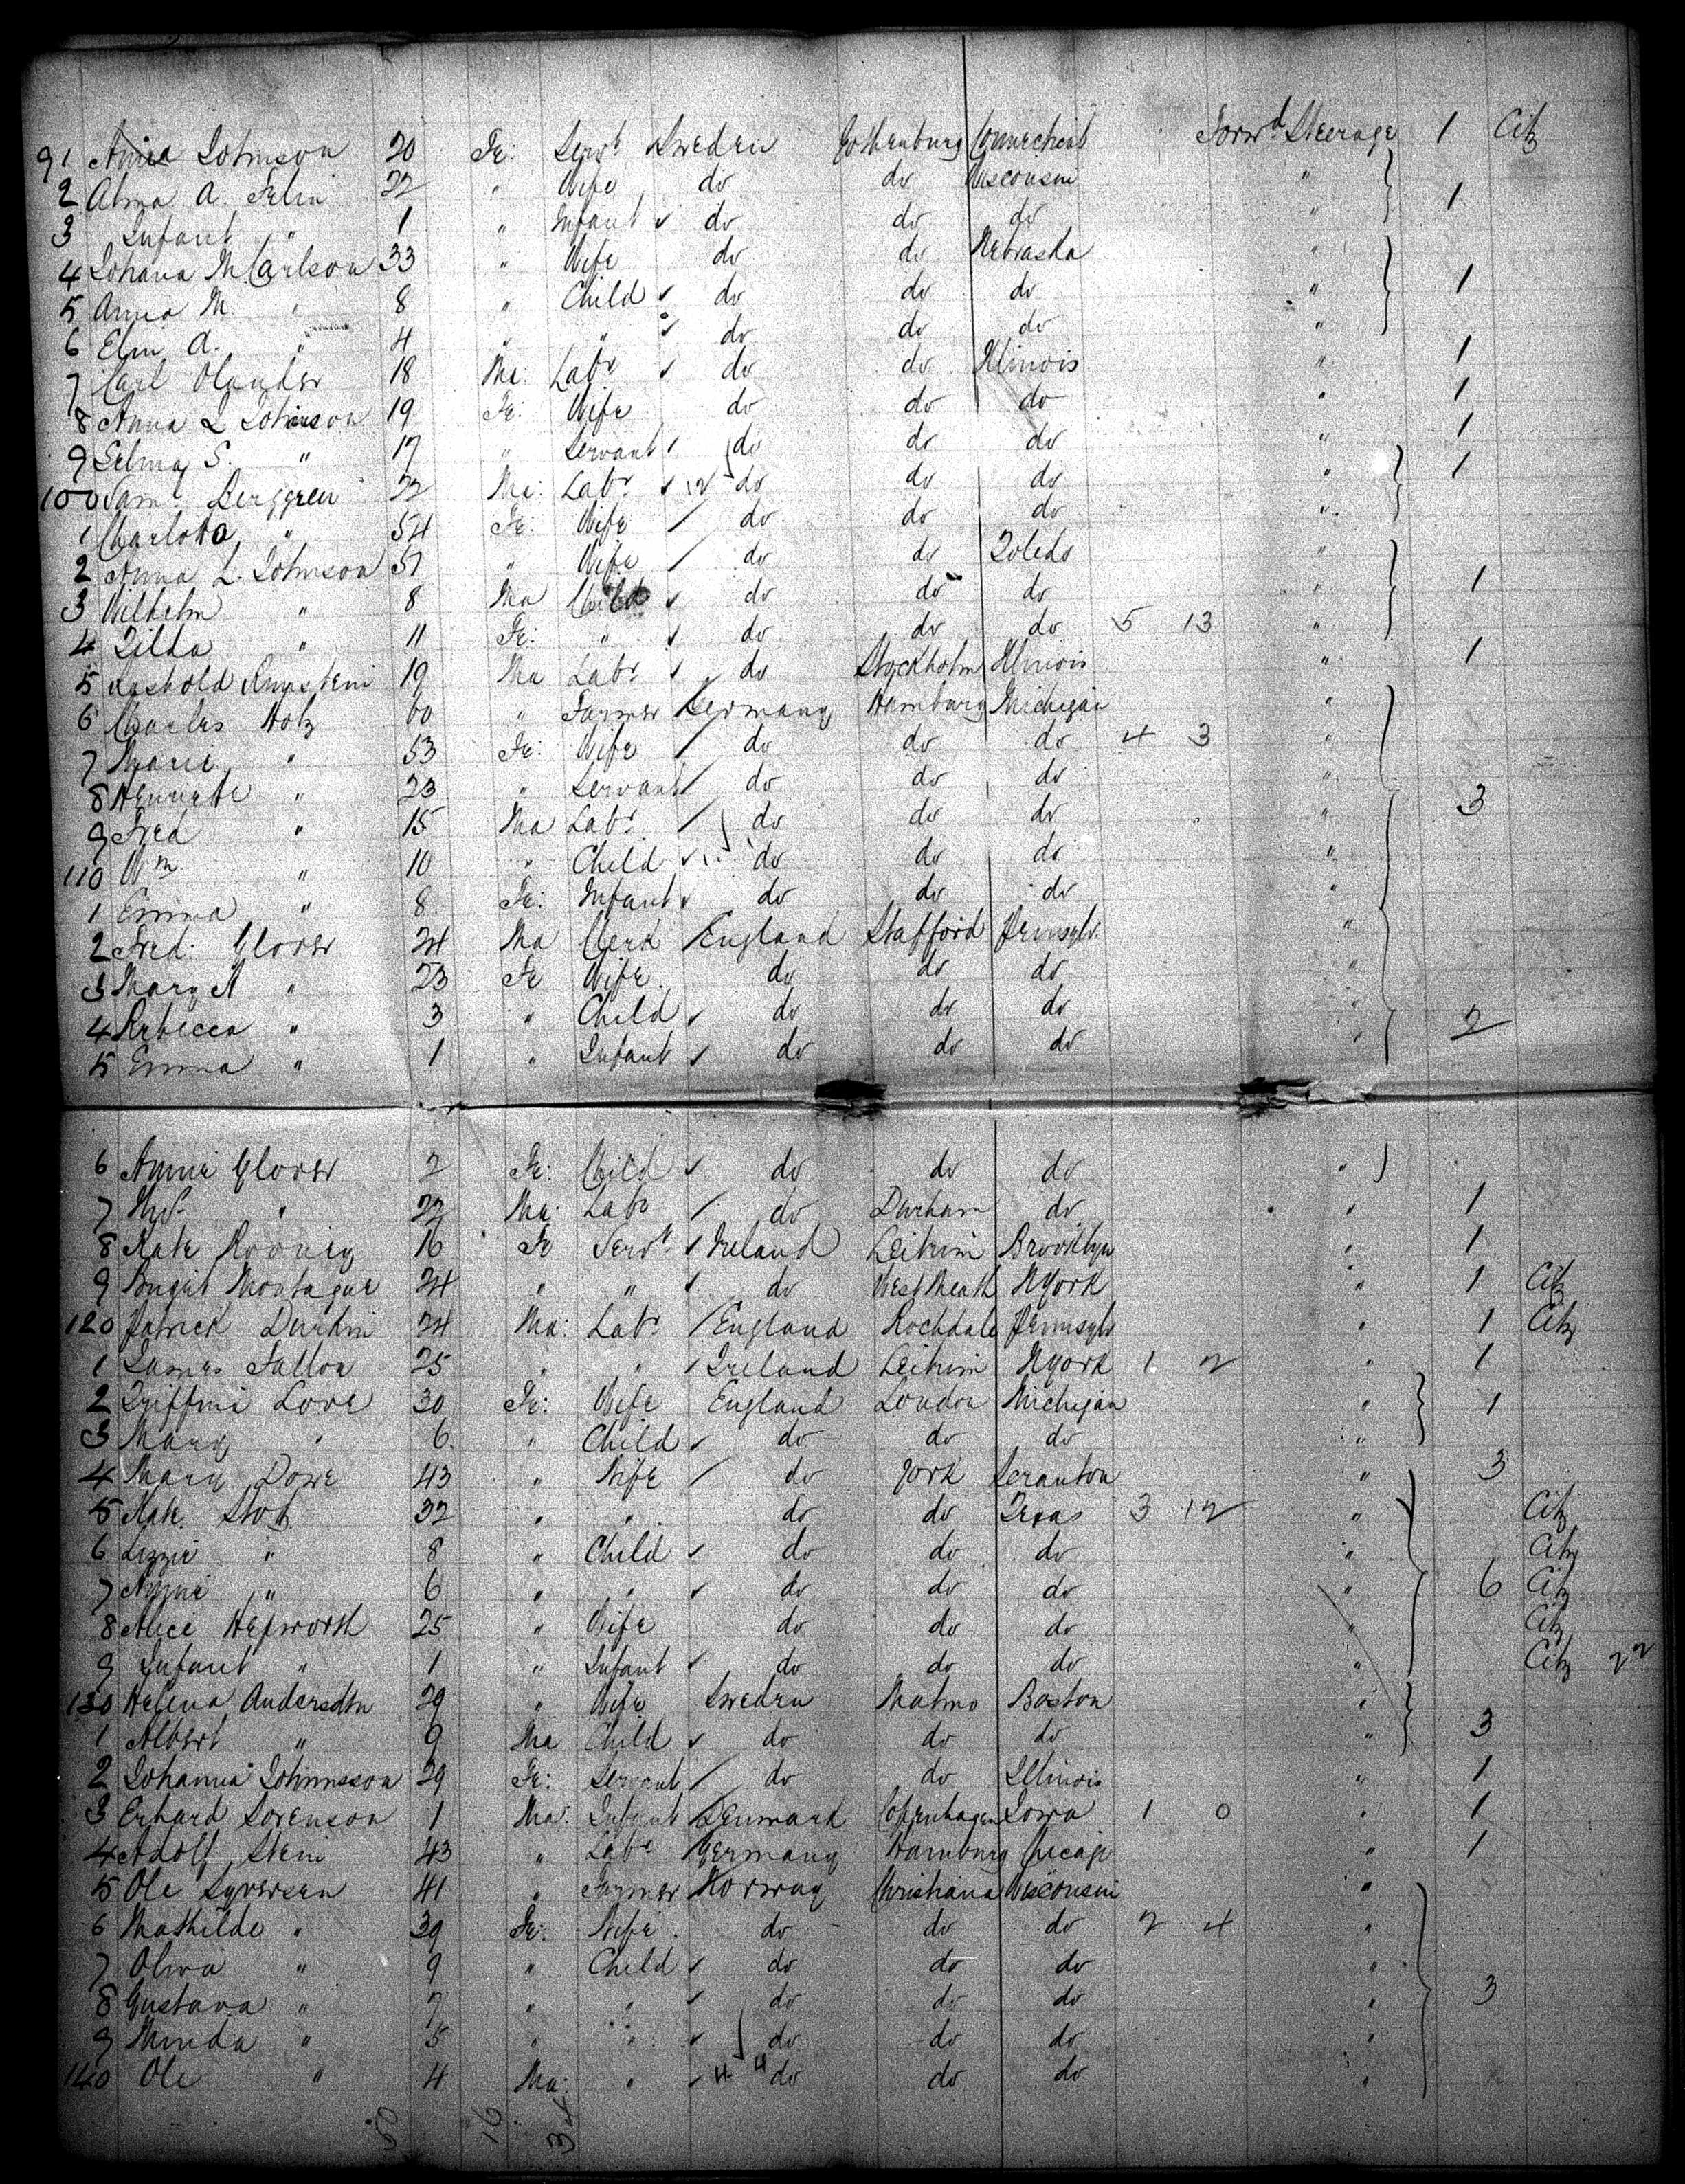 91 Anna Johnson 20 Fe: Servt Sweden Gothenburg Connecticut Forwd Steerage 1 Citz
2 Alma A. Felin 22 " Wife do do Wisconsin "
3 Infant " 1 " Infant ✓ do do do " 1
4 Johana M Carlson 33 " Wife do do Nebraska "
5 Anna M. " 8 " Child ✓ do do do " 1
6 Elin A. " 4 " " ✓ do do do "
7 Carl Olander 18 Ma: Labr ✓ do do Illinois " 1
8 Anna L Johnson 19 Fe: Wife do do do " 1
9 Selma S. " 17 " Servant do do do " 1
100 Saml Berggren 22 Ma: Labr ✓ 2 do do do " 1
1 Charlota " 54 Fe: Wife / do do do "
2 Anna L. Johnson 51 " Wife / do do Toledo "
3 Wilhelm " 8 Ma Child ✓ do do do " 1
4 Tilda " 11 Fe: " ✓ do do do 5 13 "
5 19 Ma Labr ✓ do Stockholm Illinois " 1
6 Charles Hotz 60 " Farmer Germany Hamburg Michigan "
7 Marie " 53 Fe: Wife / do do do 4 3 "
8 Henriette " 23 " Servant / do do do "
9 Fred " 15 Ma Labr / do do do " 3
110 Wm " 10 " Child ✓ do do do "
1 Emma " 8 Fe: Infant ✓ do do do "
2 Fred: Glover 24 Ma Clerk / England Stafford Pennsylv. "
3 Mary A " 23 Fe Wife do do do "
4 Rebecca " 3 " Child ✓ do do do " 2
5 Emma " 1 " Infant ✓ do do do "
6 Annie Glover 2 Fe: Child ✓ do do do "
7 " 22 Ma: Labr / do Durham do " 1
8 Kate Rooney 16 Fe Servt ✓ Ireland Leitrim Brooklyn " 1
9 Briget Montague 24 " " ✓ do West Meath NYork " 1 Citz
120 Patrick Durkin 24 Ma: Labr / England Rochdale Pennsylv " 1 Citz
1 James Fallon 25 " " / Ireland Leitrim NYork 1 2 " 1
2 Love 30 Fe: Wife England London Michigan " 1
3 Mary " 6 " Child ✓ do do do "
4 Mary Dowe 43 " Wife / do York Scranton " 3
5 Kate Stot 32 " " do do Texas 3 12 " Citz
6 Lizzie " 8 " Child ✓ do do do " Citz
7 Annie " 6 " " ✓ do do do " 6 Citz
8 Alice Hepworth 25 " Wife do do do " Citz
9 Infant " 1 " Infant ✓ do do do " Citz 22
130 Helena Anderson 29 " Wife Sweden Malmo Boston "
1 Albert " 9 Ma Child ✓ do do do " 3
2 Johanna Johnnsson 29 Fe: Servant / do do Illinois " 1
3 Erhard Sorenson 1 Ma: Infant Denmark Copenhagen Iowa 1 0 " 1
4 Adolf Stein 43 " Labr Germany Hamburg Chicago " 1
5 Ole Syversen 41 " Farmer Norway Christiana Wisconsin "
6 Mathilde " 39 Fe: Wife do do do 2 4 "
7 Oliva " 9 " Child ✓ do do do "
8 Gustava " 7 " " ✓ do do do " 3
9 Minda " 5 " " ✓ do do do "
140 Ole " 4 Ma: " ✓ 4 4 do do do "
50 16 34